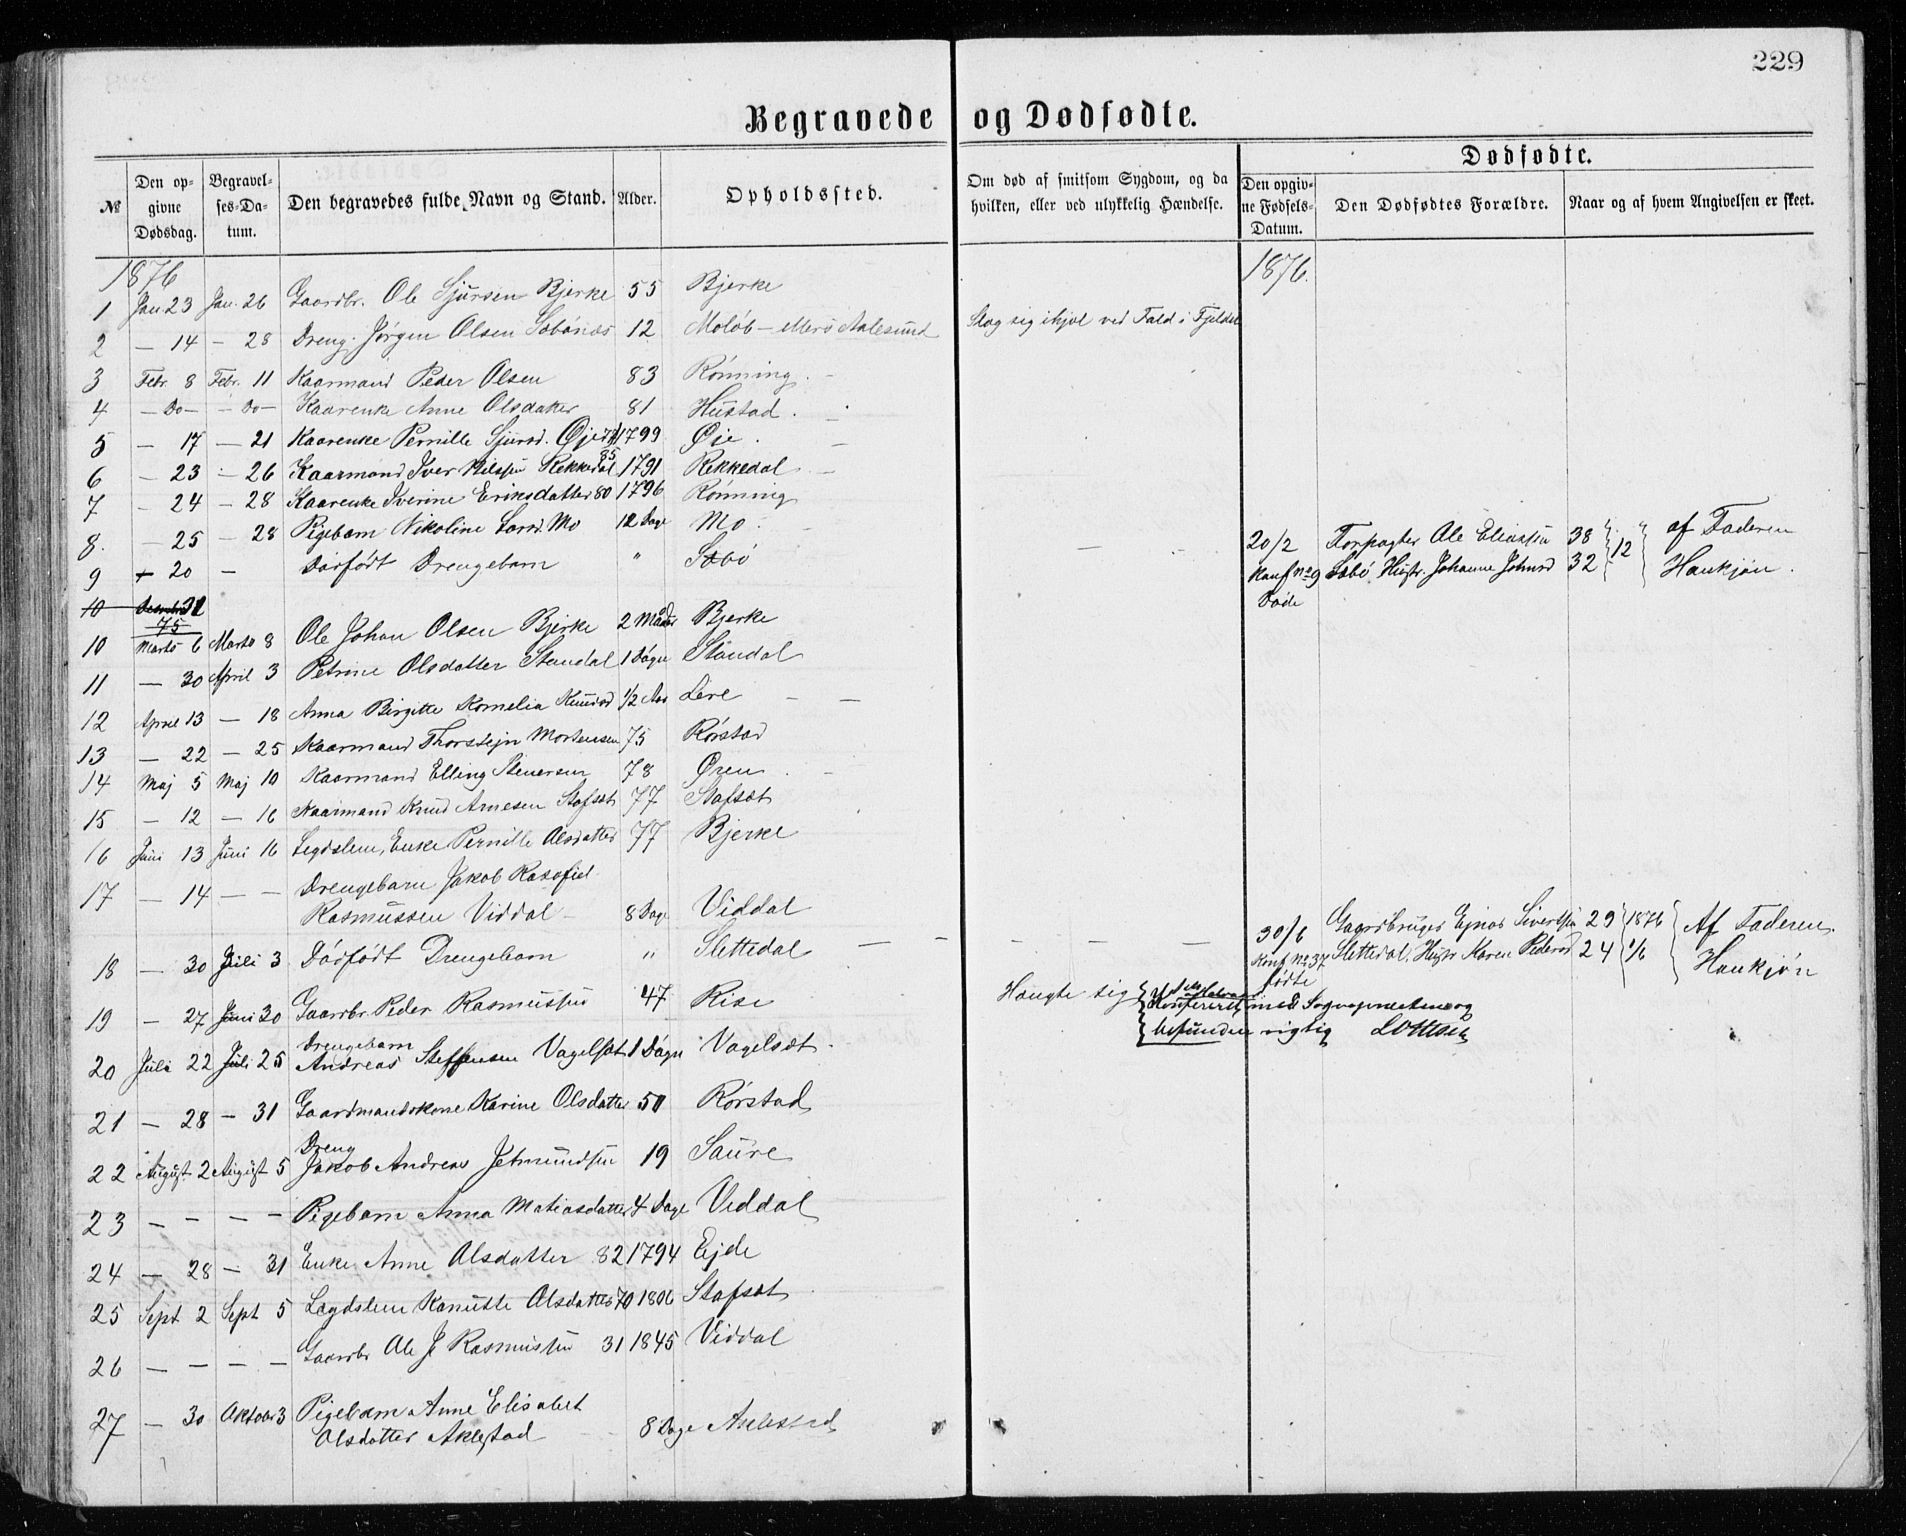 229
Begravede og Dødfødte.
№ | Den opgivne Dødsdag. | Begravelses-Datum. | Den begravedes fulde Navn og Stand. | Alder. | Opholdssted. | Om død af smitsom Sygdom, og da hvilken, eller ved ulykkelig Hændelse. | Dødfødte. Den opgivne Fødsels-Datum. | Den Dødfødtes Forældre. | Naar og af hvem Angivelsen er skeet.
1876 | 1876.
1 Jan 23 Jan. 26 Gaardbr. Ole Sjursen Bjerke 55 Bjerke
2 — 14 — 28 Dreng. Jørgen Olsen Sæbønes 12 Aalesund Slog sig ihjel ved Fald i Fjeldet
3 Febr. 8 Febr. 11 Kaarmand Peder Olsen 83 Rønning
4 — Do — — Do — Kaarenke Anne Olsdatter 81 Hustad
5 — 17 — 21 Kaarenke Pernille Sjursd. Øje 1799 Øie
6 — 23 — 26 Kaarmand Iver Nilssen Rekkedal 85 1791 Rekkedal
7 — 24 — 28 Kaarenke Iverine Eriksdatter 80 1796 Rønning
8. — 25 — 28 Pigebarn Nikoline Larsd. Mo 12 Dage Mo
9 + 20 — Dødfødt Drengebarn " Sæbø 20/2 Forpagter Ole Eliassen 38 12 af Faderen
Konf no 9 Sæbø, Hustr. Johanne Johnsd 32 Hankjøn.
Døde
10 31
75
10 Marts 6 Marts 8 Ole Johan Olsen Bjerke 2 Maader Bjerke
11 — 30 April 3 Petrine Olsdatter Standal 1 Døgn Standal
12 April 13 — 18 Anna Birgitte Kornelia Knudsd 1/2 Aar Leire
13 — 22 — 25 Kaarmand Thorstejn Mortensen 75 Rørstad
14 Maj 5 Maj 10 Kaarmand Elling Stenersen 78 Øren
15 — 12 — 16 Kaarmand Knud Arnesen Stafsæt 77 Stafsæt
16 Juni 13 Juni 16 Legdslem, Enke Pernille Olsdatter 77 Bjerke
17 — 14 — — Drengebarn Jakob
Rasmussen Viddal 8 Dage Viddal
18 — 30 Juli 3 Dødfødt Drengebarn " Slettedal — — — — — 30/6 Gaardbruger Ejnar Sivertsen 29 1876 Af Faderen
Konf No 37 Slettedal, Hustr Karen Pedersd 24 1/6 Hankjøn
fødte
19 — 27 Juni 30 Gaardbr. Peder Rasmussen 47 Rise Hængte sig
Konfereret med
befunden rigtig
20 Juli 22 Juli 25 Drengebarn
Andreas Steffensen Vagelsæt 1 Døgn Vagelsæt
21 — 28 — 31 Gaardmandskone Karine Olsdatter 50 Rørstad
22 August 2 August 5 Dreng
Jakob Andreas Jetmundsen 19 Saure
23 — — — — Pigebarn Anna Matiasdatter 4 Dage Viddal
24 — 28 — 31 Enke Anne Olsdatter 82 1794 Ejde
25 Sept 2 Sept 5 Lægdslem Kanutte Olsdatter 70 1806 Stafsæt
26 — — — — Gaardbr Ole J Rasmussen 31 1845 Viddal
27 — 30 Oktober 3 Pigebarn Anne Elisabet
Olsdatter Aklestad 8 Dage Aklestad